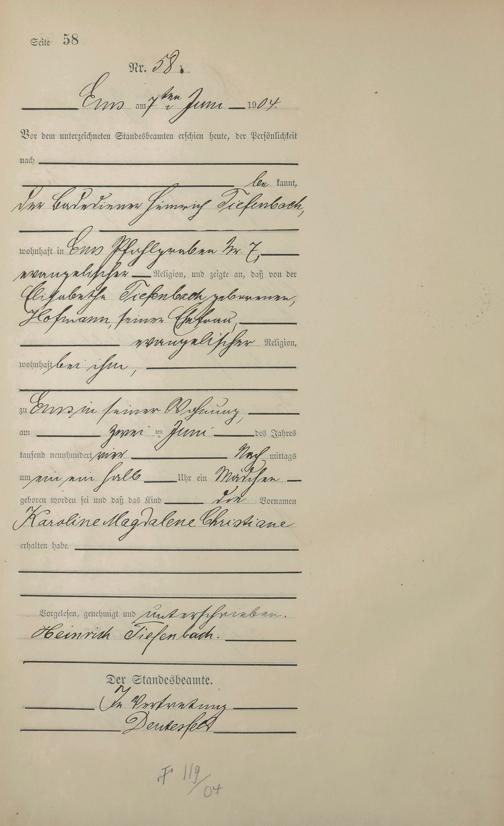 Seite 58
Nr. 58.
Ems am 7ten Juni 1904.
Vor dem unterzeichneten Standesbeamten erschien heute, der Persönlichkeit
nach
be kannt,
der Badediener Heinrich Tiefenbach,
wohnhaft in Ems Pfahlgraben Nr. 7,
evangelischer Religion, und zeigte an, daß von der
Elisabethe Tiefenbach geborenen,
Hofmann, seiner Ehefrau,
evangelischer Religion,
wohnhaft bei ihm,
zu Ems in seiner Wohnung,
am zwei ten Juni des Jahres
tausend neunhundert vier Nach mittags
um ein ein halb Uhr ein Mädchen
geboren worden sei und daß das Kind die Vornamen
Karoline Magdalene Christiane
erhalten habe.
Vorgelesen, genehmigt und unterschrieben.
Heinrich Tiefenbach.
Der Standesbeamte.
In Vertretung
119/04